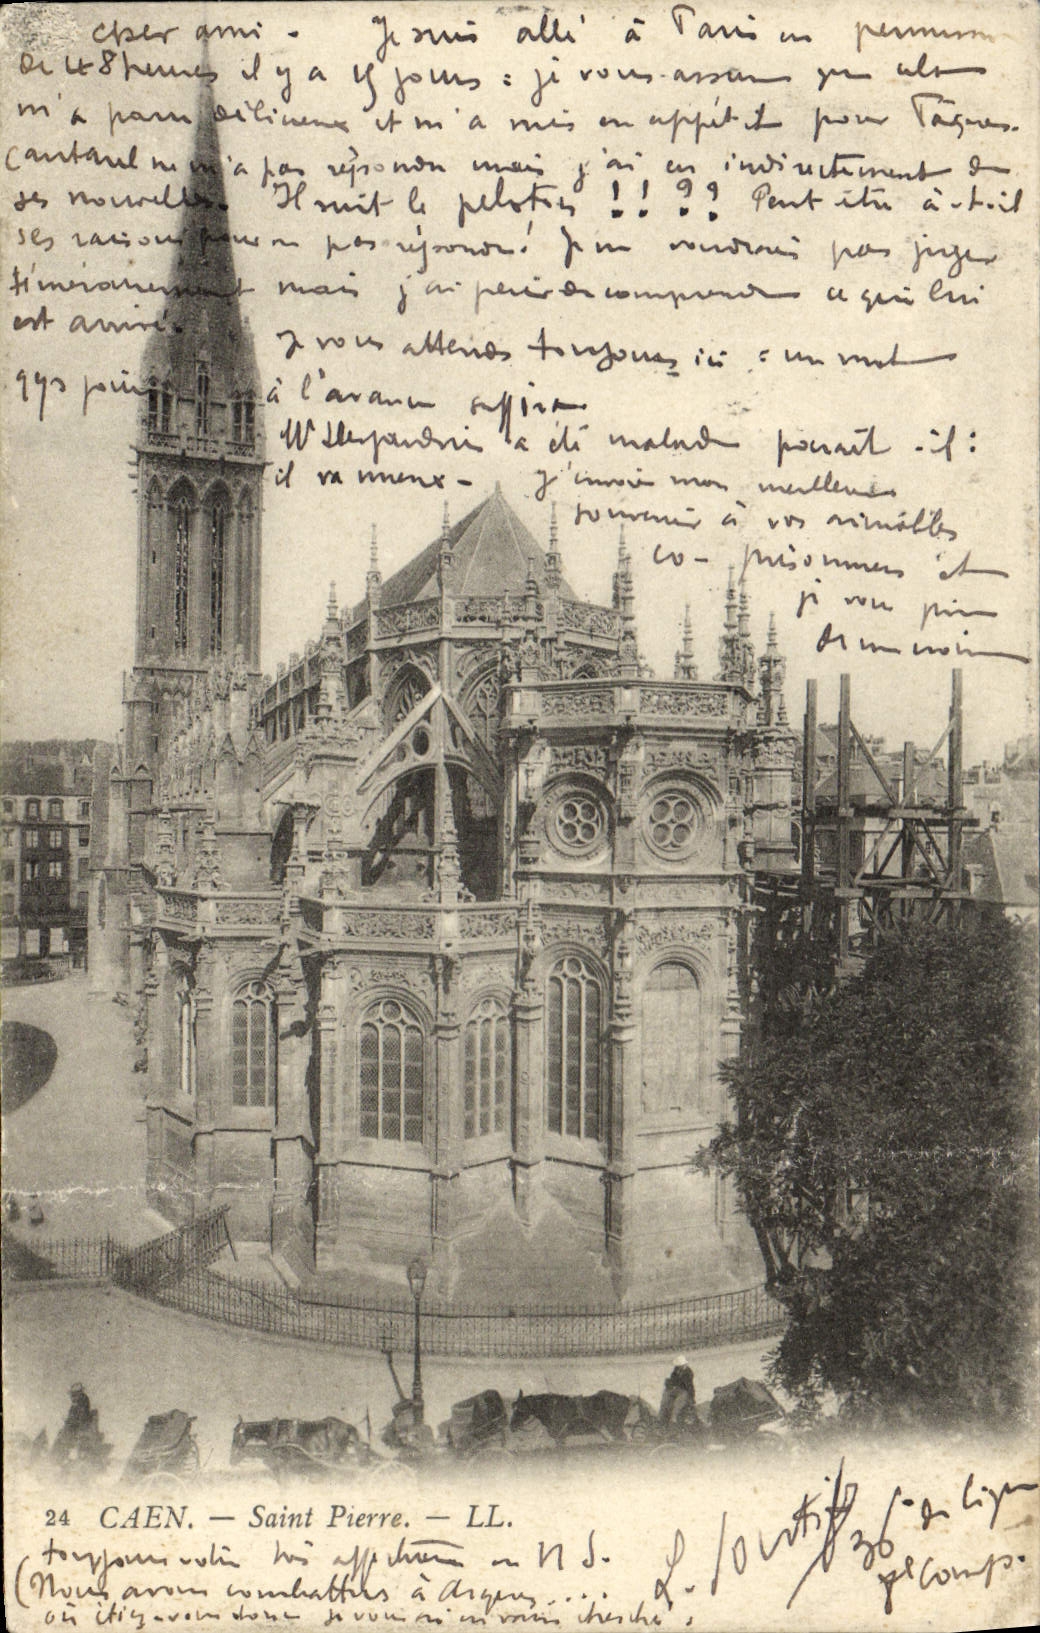 cher ami - Je suis allé à Paris en permission
de 48 heures il y a 15 jours : je vous assure que cela
m'a paru délicieux et m'a mis en appétit pour Pâques.
ne m'a pas répondu mais j'ai eu indirectement de
ses nouvelles. Il suit le peloton !! ?? Peut être a-t-il
ses raisons pour ne pas répondre! Je ne voudrais pas juger
témérairement mais j'ai peine de comprendre ce qui lui
est arrivé.
Je vous attends toujours ici : un mot
qqs jours à l'avance suffira
a été malade paraît-il :
il va mieux - J'envoie mon meilleur
souvenir à vos aimables
co-prisonniers et
je vous prie
de me croire
24 CAEN. — Saint Pierre. — LL.
toujours votre très affectionné en N. S.
36e de ligne
(Nous avons combattu à Argences ....
où étiez-vous donc je vous ai en vain cherché.